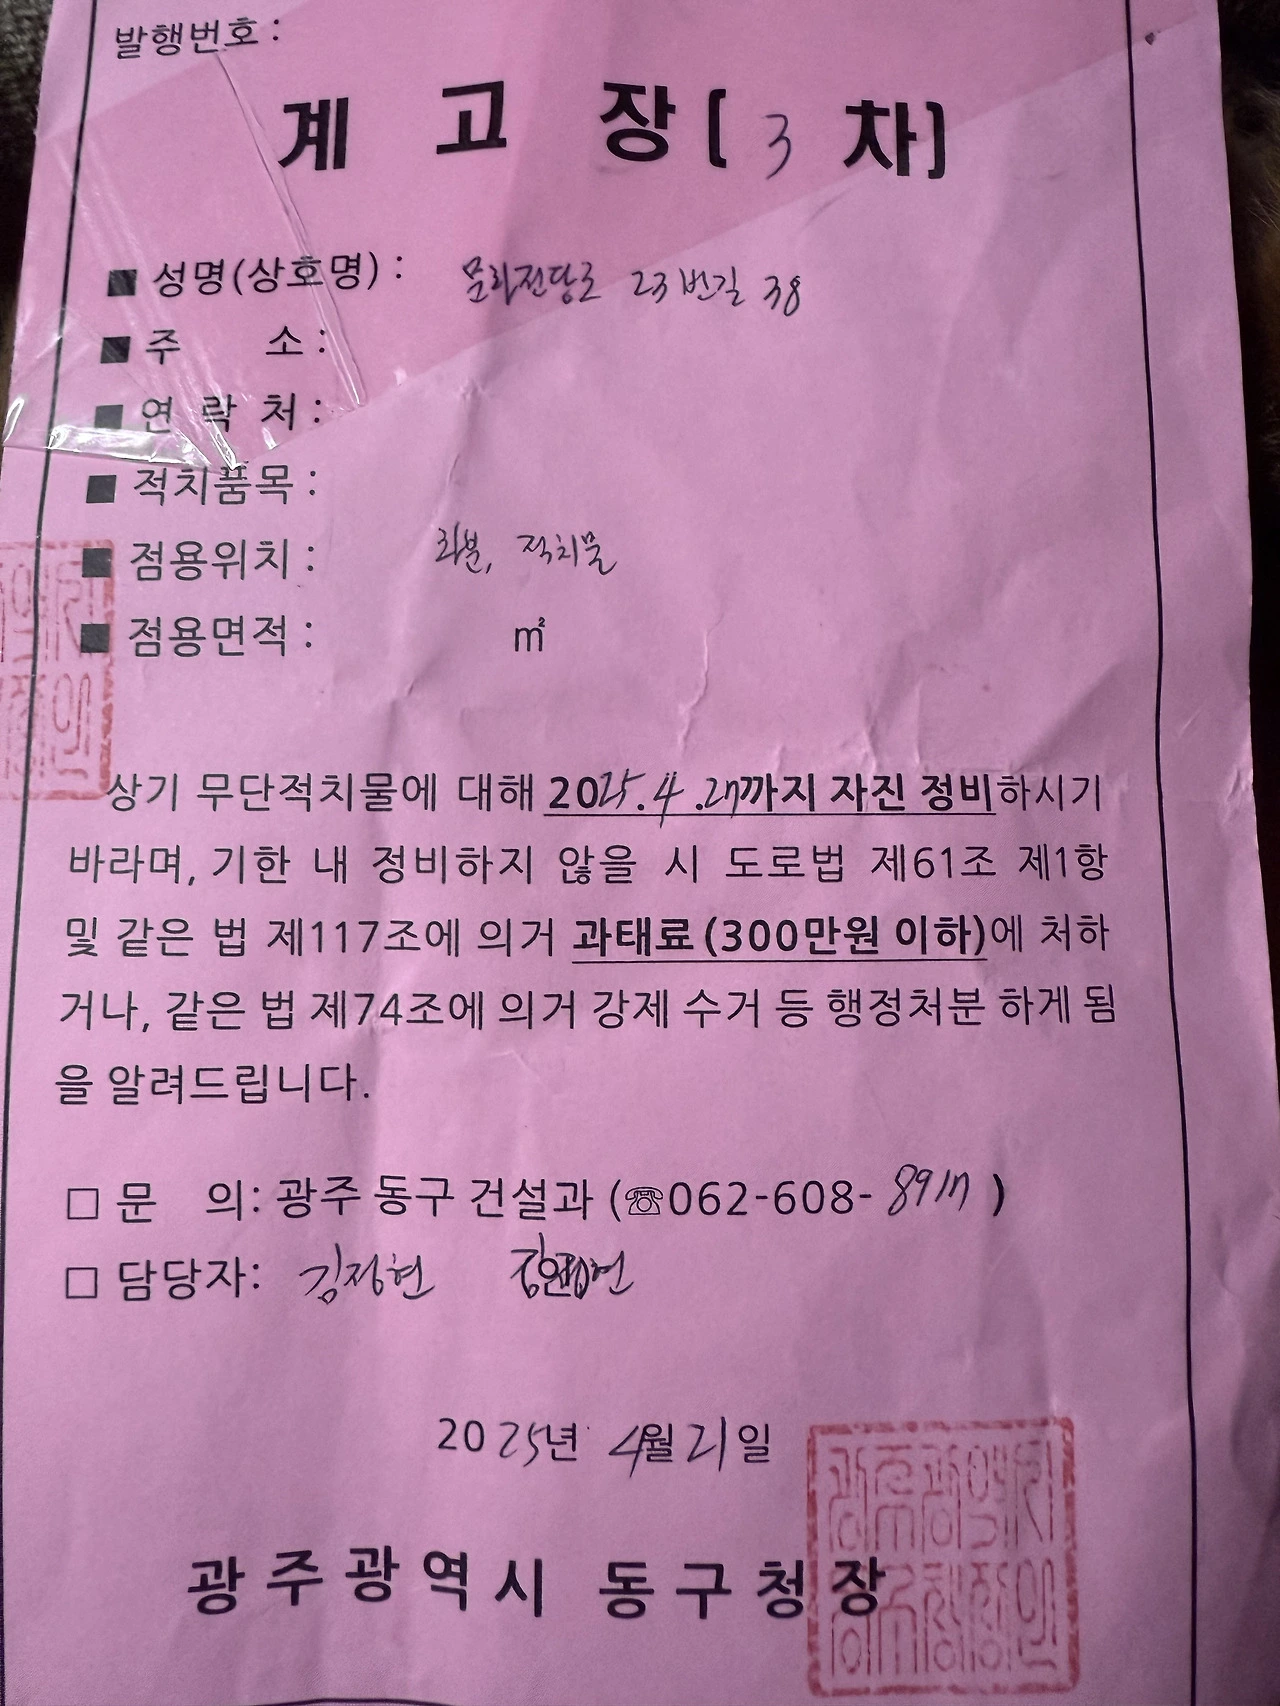 발행번호 :
계 고 장 [ 3 차]
■ 성명(상호명) : 문화전당로 23번길 38
■ 주 소 :
■ 연 락 처 :
■ 적치품목 :
■ 점용위치 : 화분, 적치물
■ 점용면적 : ㎡
상기 무단적치물에 대해 2025.4.27까지 자진 정비하시기
바라며, 기한 내 정비하지 않을 시 도로법 제61조 제1항
및 같은 법 제117조에 의거 과태료 (300만원 이하)에 처하
거나, 같은 법 제74조에 의거 강제 수거 등 행정처분 하게 됨
을 알려드립니다.
□ 문 의: 광주 동구 건설과 (☏062-608- )
□ 담당자: 김정현
2025년 4월 21일
광주광역시 동구청장